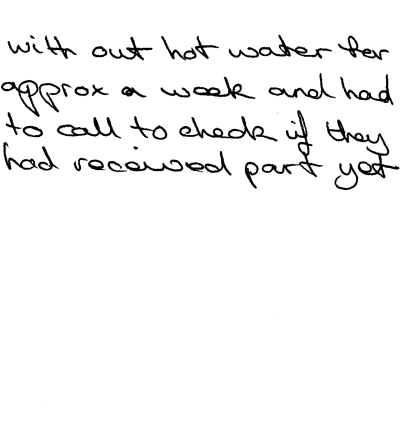 with out hot water for
approx a week and had
to call to check if they
had received part yet